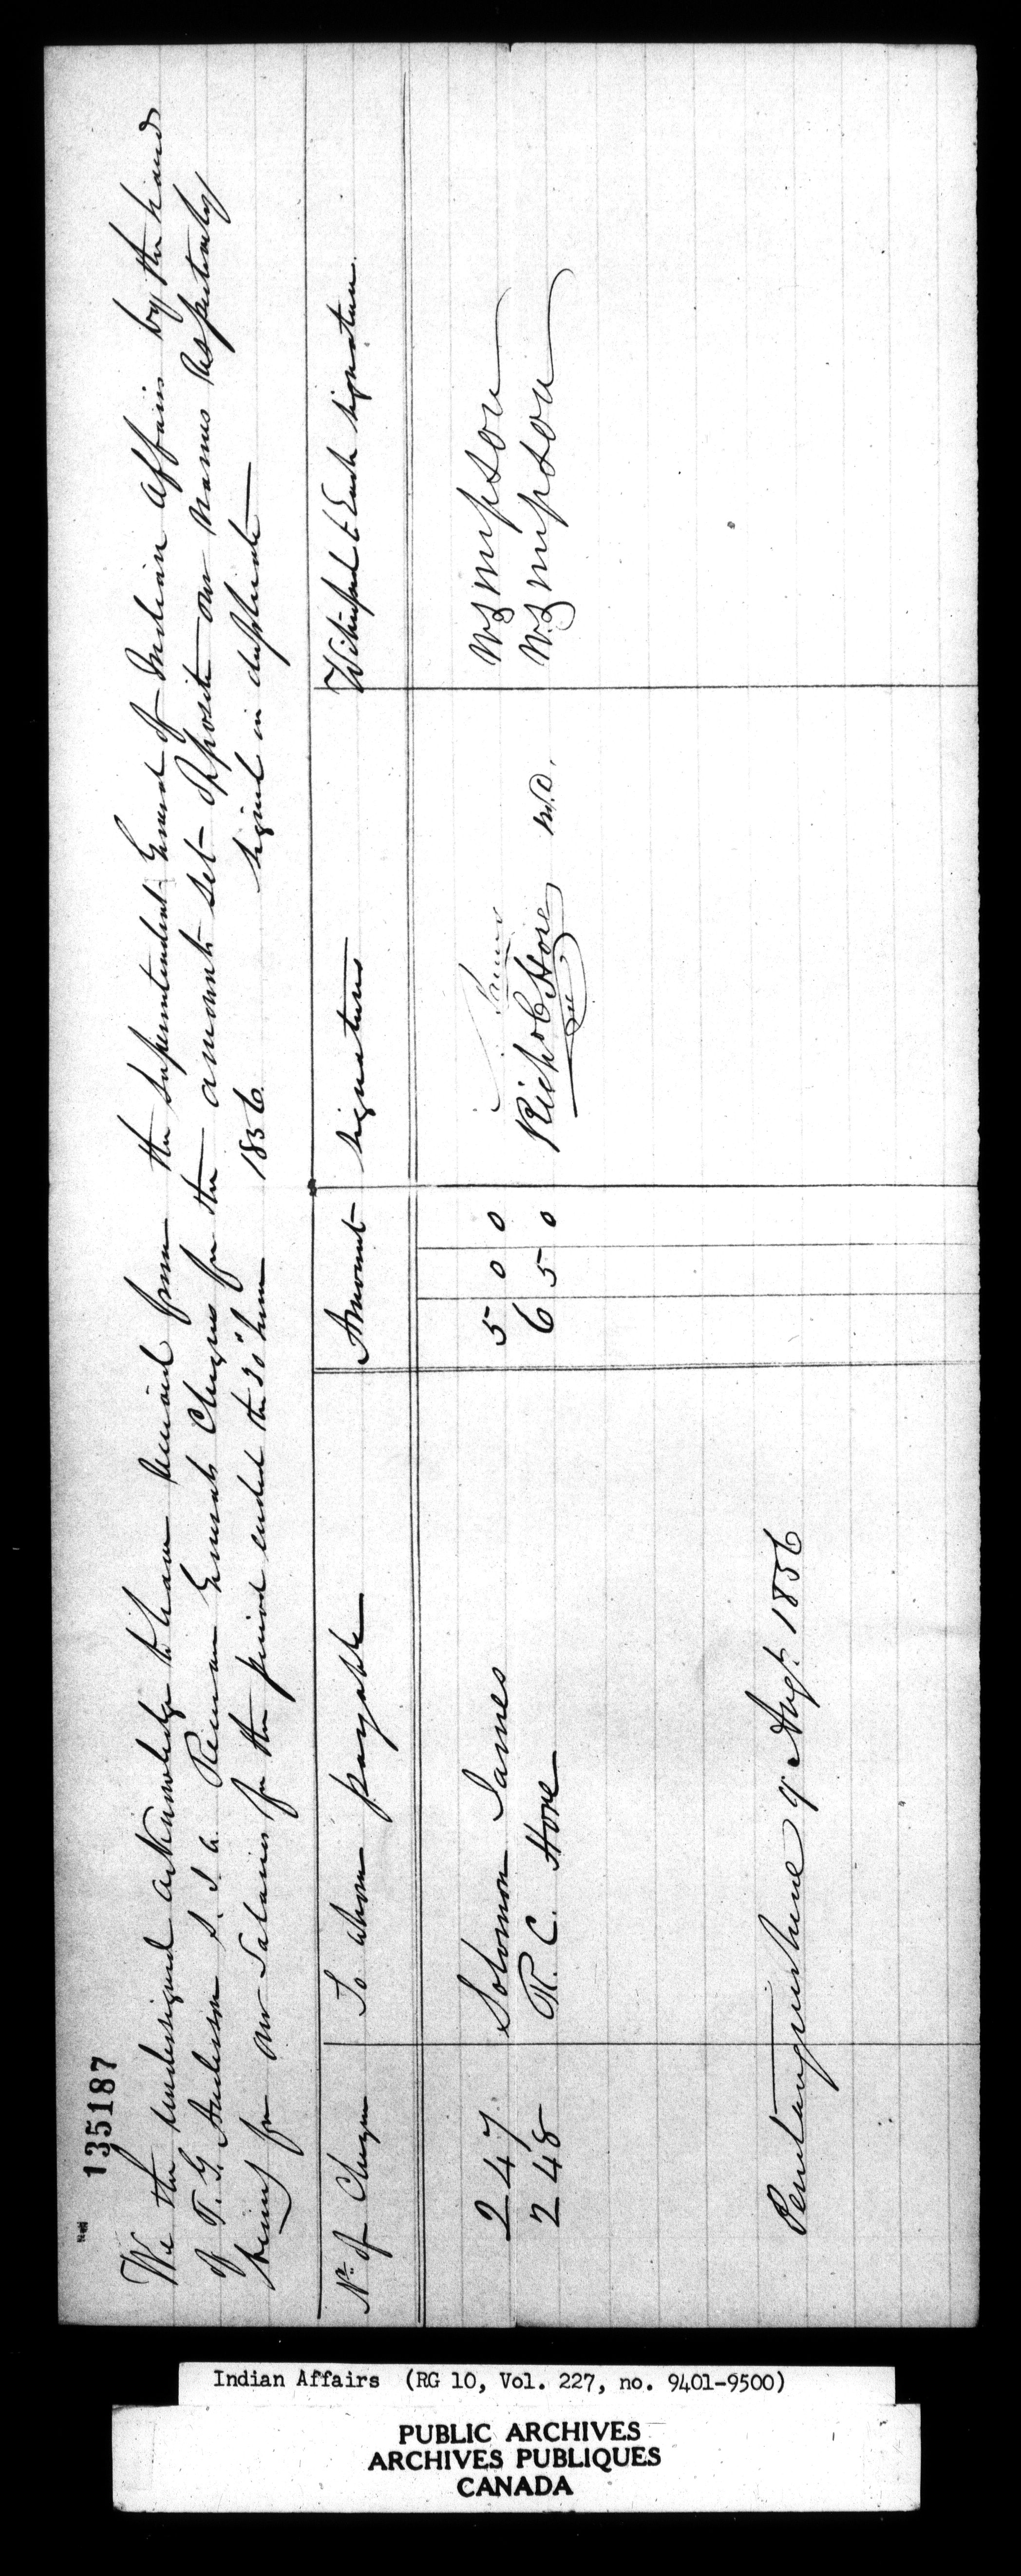 135187
We the undersigned acknowledge to have received from the Superintendent General of Indian Affairs by the hand
of T. G. Anderson S. I. A. Receiver Generals Cheques for the amounts set opposite our names respectively
being for our Salaries for the period ended the 30" June 1856. signed in duplicate
No. of Cheque To whom payable Amount Signatures Witnessed to Each signature.
247 Solomon James 5 0 0 James W Simpson
248 R. C. Hore 6 5 0 Richd C Hore M.D. W. Simpson
Penetanguishene 9 Augt. 1856
Indian Affairs (RG 10, Vol. 227, no. 9401-9500)
PUBLIC ARCHIVES
ARCHIVES PUBLIQUES
CANADA